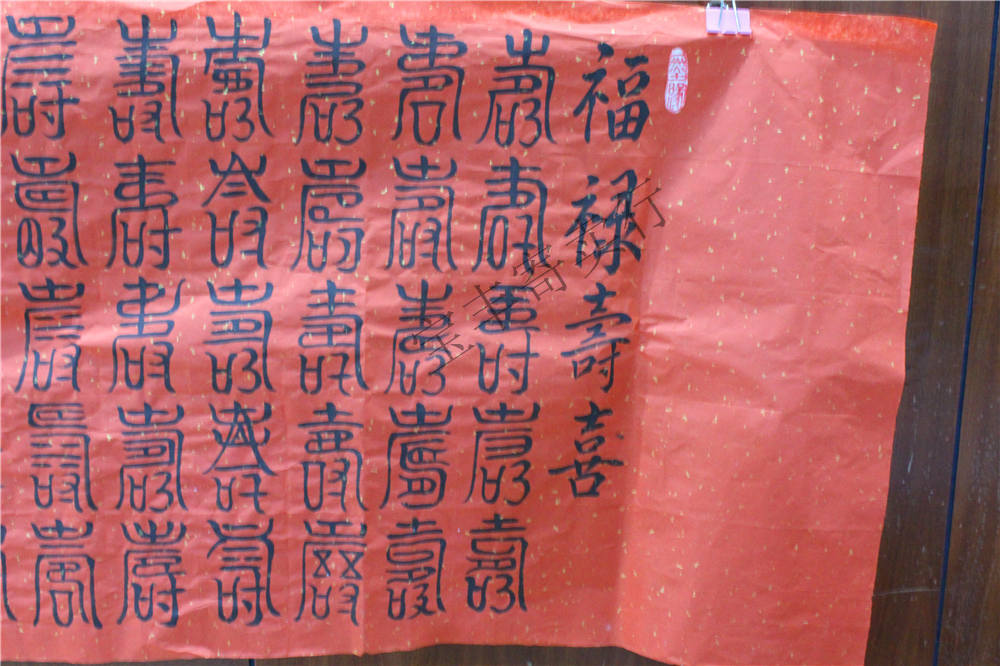 福禄壽喜
壽壽壽壽壽
壽壽壽壽壽
壽壽壽壽壽
壽壽壽壽壽
壽壽壽壽壽
壽壽壽壽壽